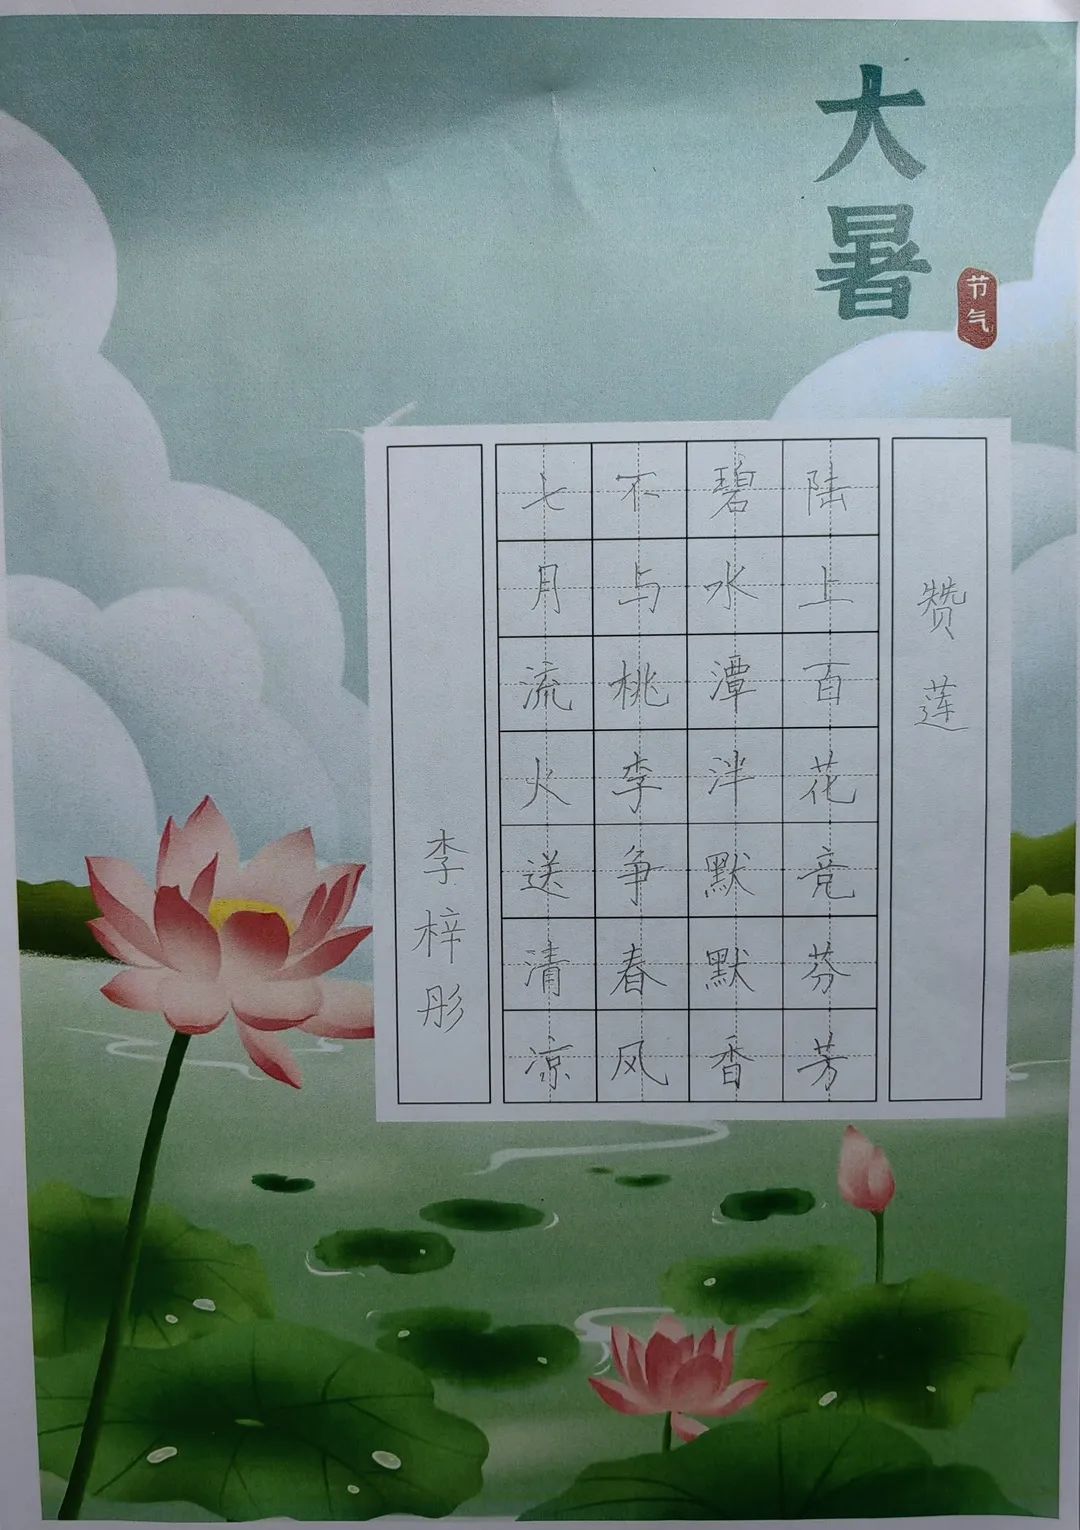 大暑
节气
赞莲
陆上百花竞芬芳
碧水潭泮默默香
不与桃李争春风
七月流火送清凉
李梓彤